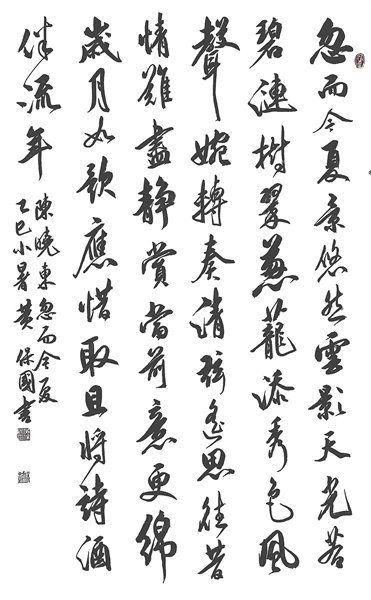 忽而今夏景悠然雲影天光若
碧漣樹翠蔥蘢添秀色風
聲婉轉奏清弦遙思往昔
情難盡靜賞當前意更綿
歲月如歌應惜取且將詩酒
伴流年
陳曉東忽而今夏
乙巳小暑黃保國書